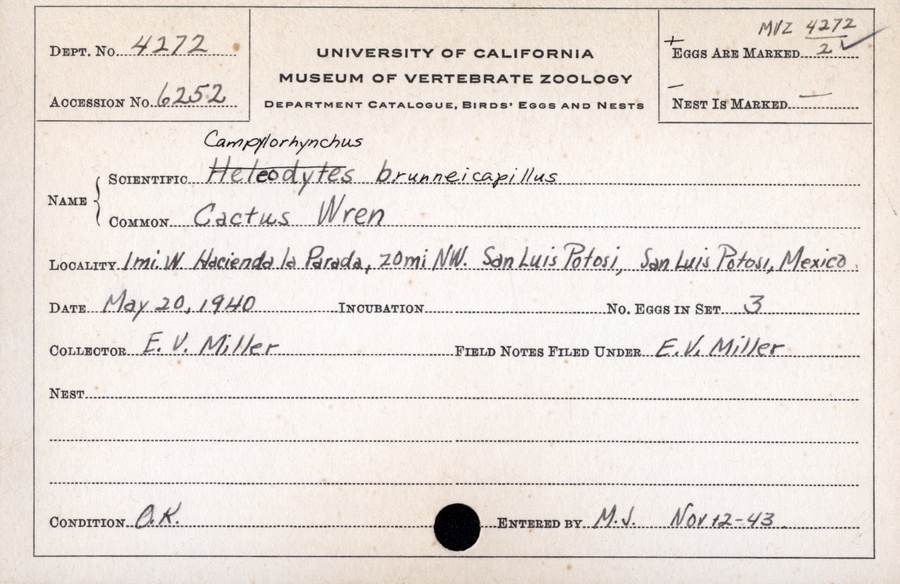 MVZ 4272
DEPT. NO. 4272
UNIVERSITY OF CALIFORNIA
+ EGGS ARE MARKED 2 ✓
MUSEUM OF VERTEBRATE ZOOLOGY
ACCESSION NO. 6252
DEPARTMENT CATALOGUE, BIRDS' EGGS AND NESTS
– NEST IS MARKED —
Campylorhynchus
NAME { SCIENTIFIC Heleodytes brunneicapillus
COMMON Cactus Wren
LOCALITY 1mi. W Hacienda la Parada, 20mi NW. San Luis Potosi, San Luis Potosi, Mexico.
DATE May 20, 1940 INCUBATION NO. EGGS IN SET 3
COLLECTOR E. V. Miller FIELD NOTES FILED UNDER E. V. Miller
NEST
CONDITION O.K. ENTERED BY M.J. Nov 12-43